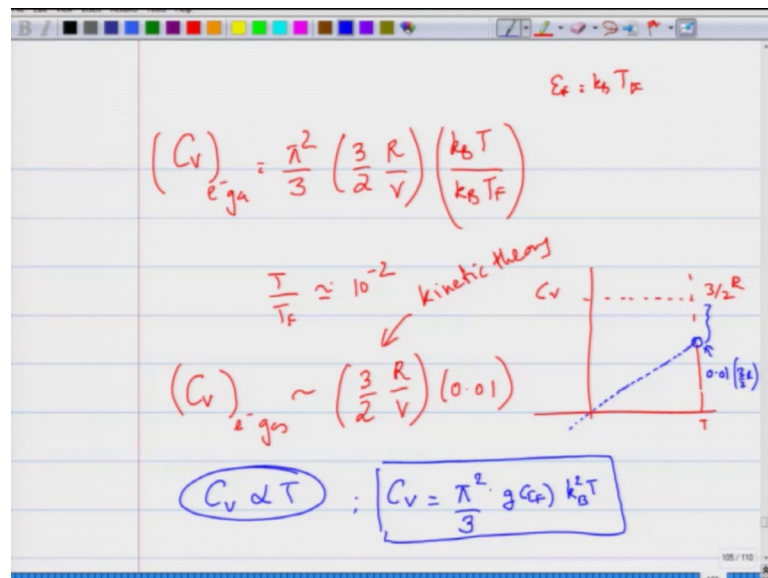 ε_F = k_B T_F
(C_V)_{e⁻ gas} = π²/3 (3/2 R/V) (k_B T / k_B T_F)
T/T_F ≃ 10⁻²
kinetic theory
(C_V)_{e⁻ gas} ~ (3/2 R/V) (0.01)
C_V
3/2 R
0.01 (3/2 R)
T
C_V ∝ T ; C_V = π²/3 · g(ε_F) k_B² T
105 / 110